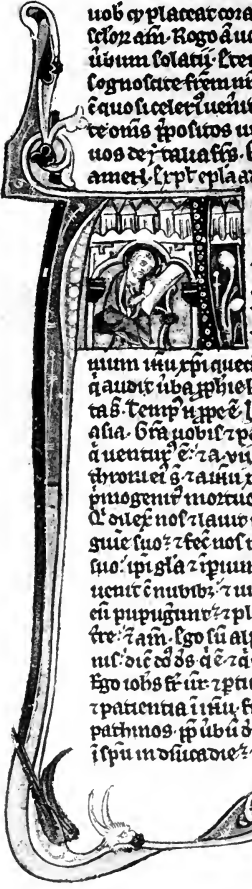 uob̅ q̅ placeat cora
sc̅lor̅ am̅. Rogo au
ūbum solatij. Ete
Cognoscite fr̅em nr̅
c̅ quo si celeri ueni
te om̅s p̅positos u
uos de ytalia ff̅s.
amen. Expt̅ ep̅la ad
mum ih̅u xp̅i que
q̅ audit ūba p̅phie
ta s̅. Temp' n̅ p̅pe e̅.
asia. Gr̅a uobis ⁊ p
q̅ uentur' e̅. ⁊ a. vii
throni ei' s̅. ⁊ a ih̅u x
p̅mogenit' mortuo
Q̅ dilex̅ nos ⁊ lauit
guīe suo. ⁊ fec̅ nos
suo. ip̅i gl̅a ⁊ ip̅ium
uenit c̅ nubib; ⁊ ui
eū pupugunt̅. ⁊ pl
tre. ⁊ am̅. Ego sū al
nis. dic̅ d̅s q̅ e̅ ⁊ q̅
Ego ioh̅s fr̅ ur̅. ⁊ p̅tic
⁊ patientia ī ih̅u. f
pathmos. pp̅ ūbū d
ī sp̅u in dn̅ica die ⁊